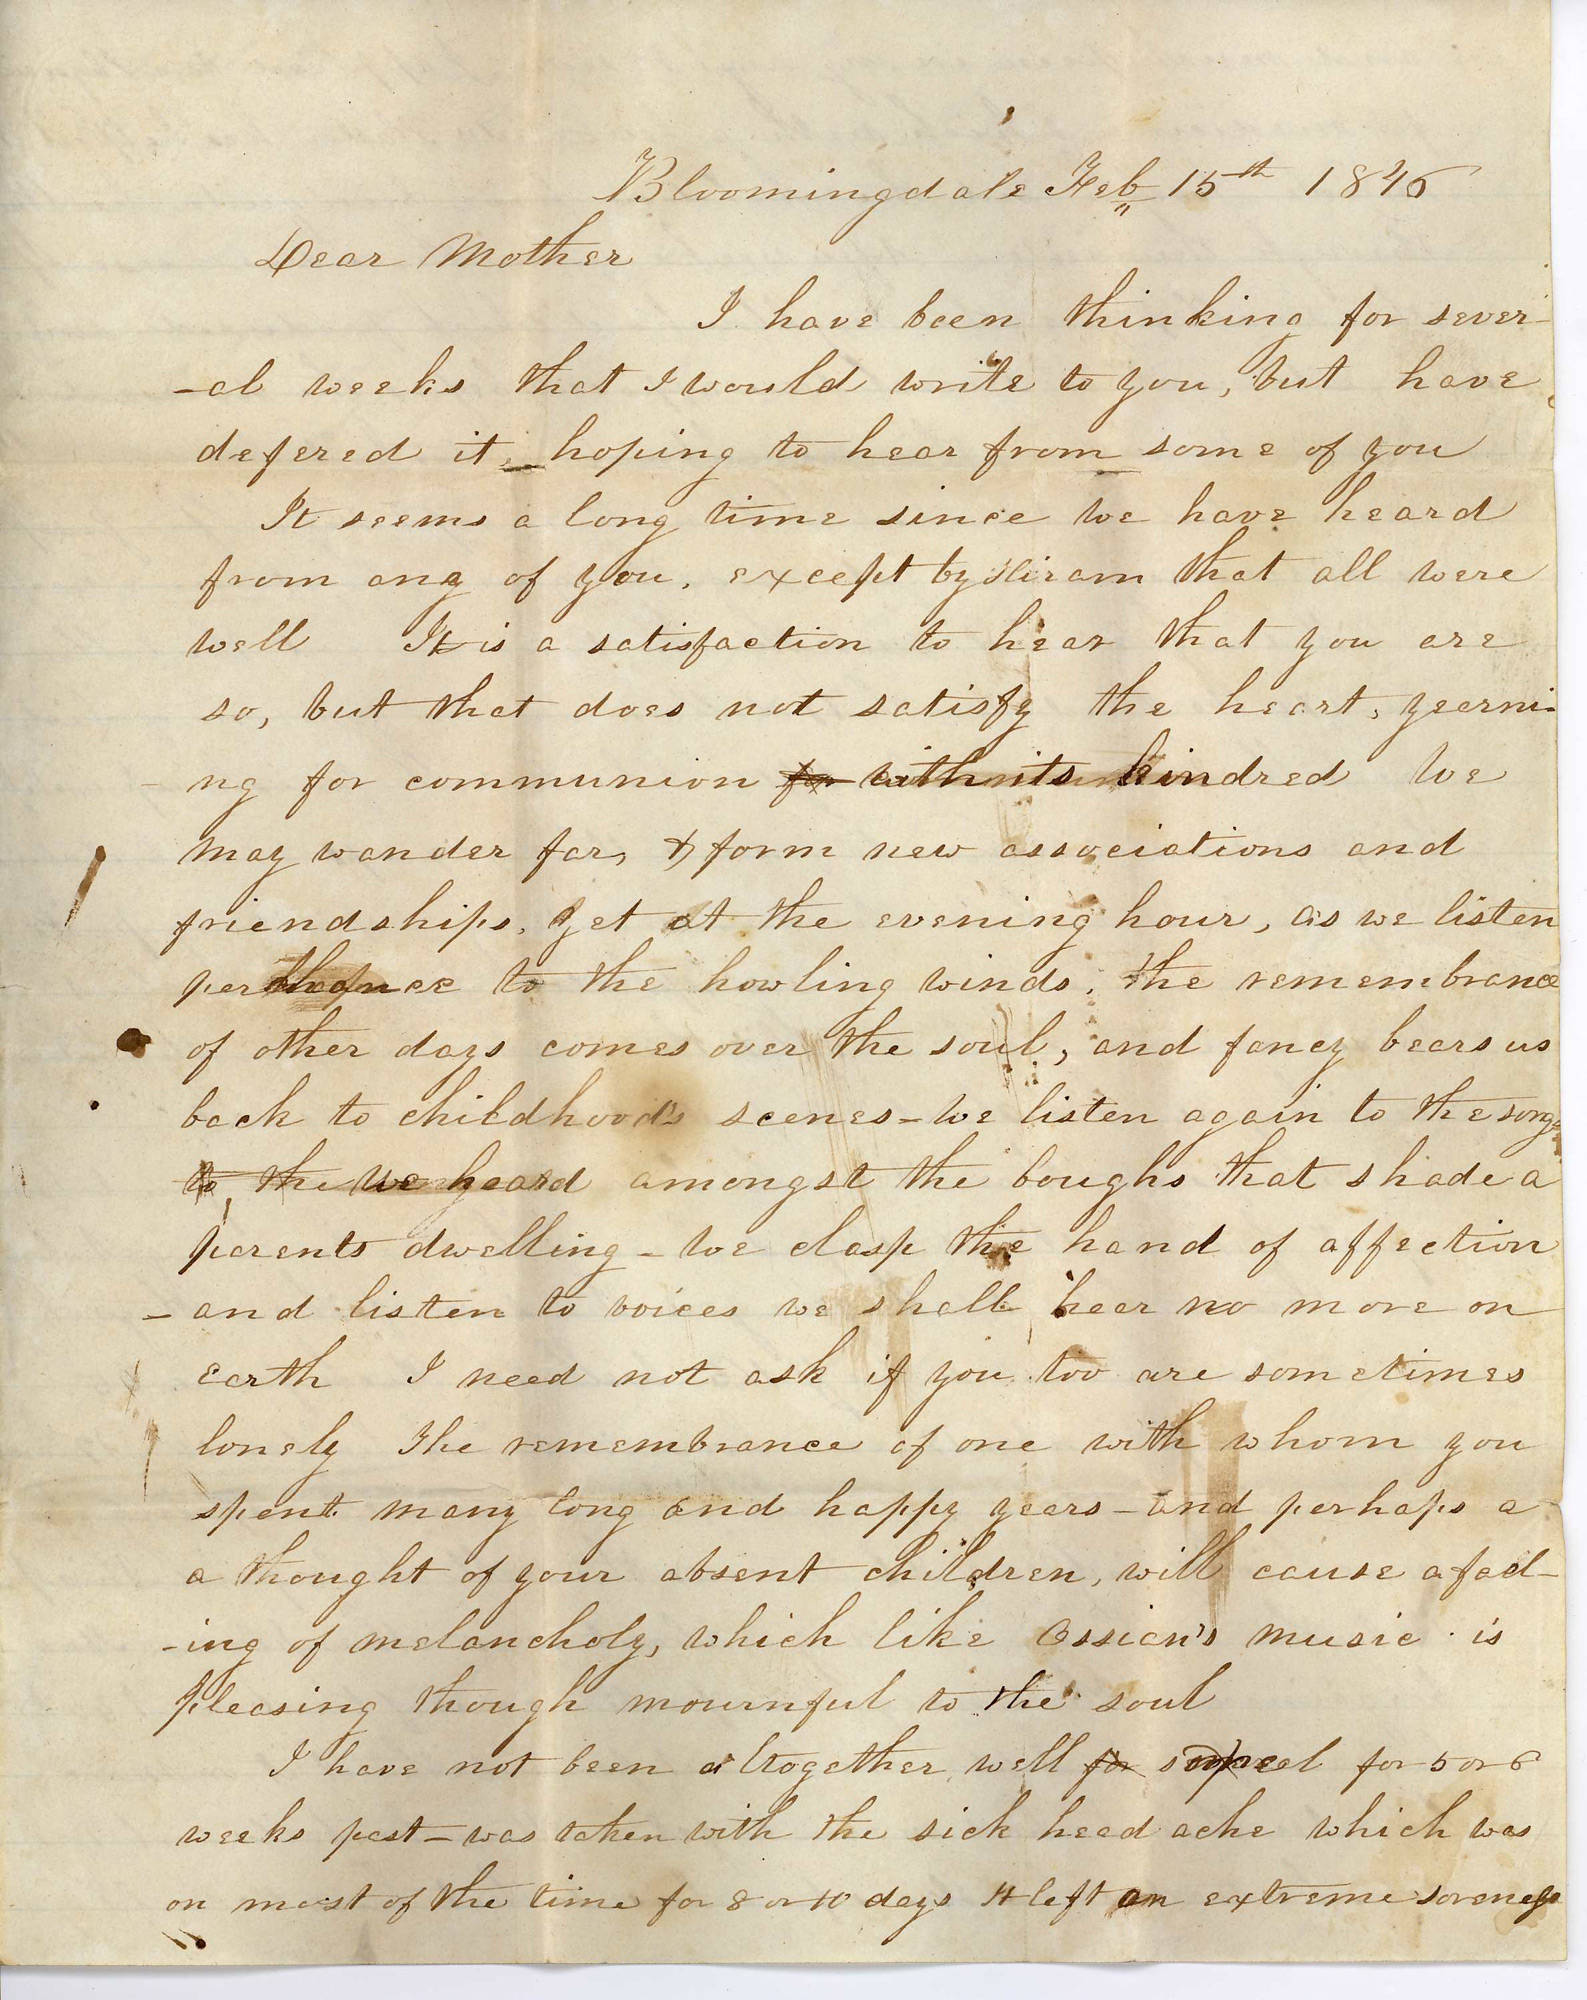 Bloomingdale Feb 15th 1846
Dear Mother
I have been thinking for sever-
-al weeks that I would write to you, but have
defered it, hoping to hear from some of you
It seems a long time since we have heard
from any of you, except by Hiram that all were
well It is a satisfaction to hear that you are
so, but that does not satisfy the heart, yearni-
ng for communion for with its kindred We
may wander far, & form new associations and
friendships, yet at the evening hour, as we listen
perchance to the howling winds, the remembrance
of other days comes over the soul, and fancy bears us
back to childhood's scenes - we listen again to the songs
to the we heard amongst the boughs that shade a
parents dwelling - we clasp the hand of affection
- and listen to voices we shall hear no more on
earth I need not ask if you too are sometimes
lonely The remembrance of one with whom you
spent many long and happy years - and perhaps a
a thought of your absent children, will cause a feel-
-ing of melancholy, which like Ossian's music is
pleasing though mournful to the soul
I have not been altogether well for for 5 or 6
weeks past - was taken with the sick head ache which was
on most of the time for 8 or 10 days It left an extreme soreness